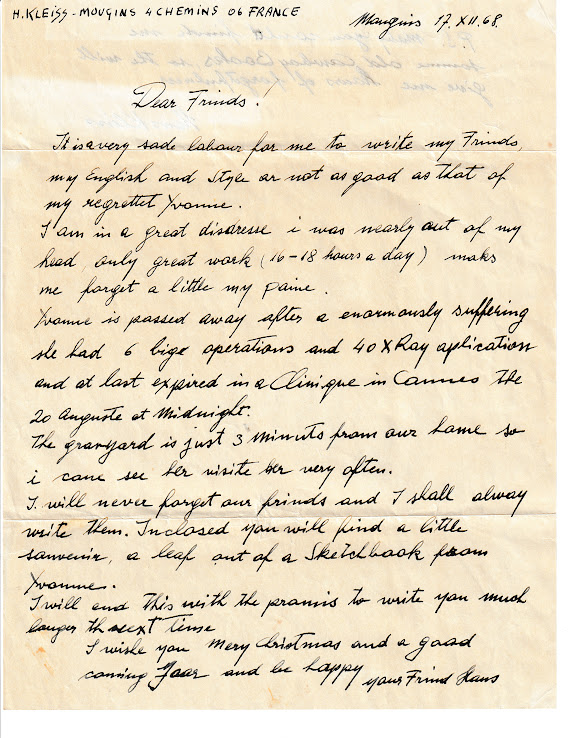 H. KLEISS - MOUGINS 4 CHEMINS 06 FRANCE
Mougins 17. XII. 68.
Dear Frinds!
It is a very sade labour for me to write my Frinds,
my English and Style ar not as good as that of
my regrettet Yvonne.
I am in a great disdresse i was nearly out of my
head, only great work (16-18 hours a day) maks
me forget a little my paine.
Yvonne is passed away after a enormously suffering
she had 6 bige operations and 40 X Ray aplication
and at last expired in a Clinique in Cannes the
20 Auguste at Midnight.
The graveyard is just 3 Minuts from our home so
i cane see her visite her very often.
I. will never forget our frinds and I shall alway
write them. Inclosed you will find a little
souvenir, a leaf out of a Sketchbook from
Yvonne.
I will end this with the promis to write you much
longer th next time
I wishe you Mery Christmas and a good
coming Jaar and be happy
your Frind Hans